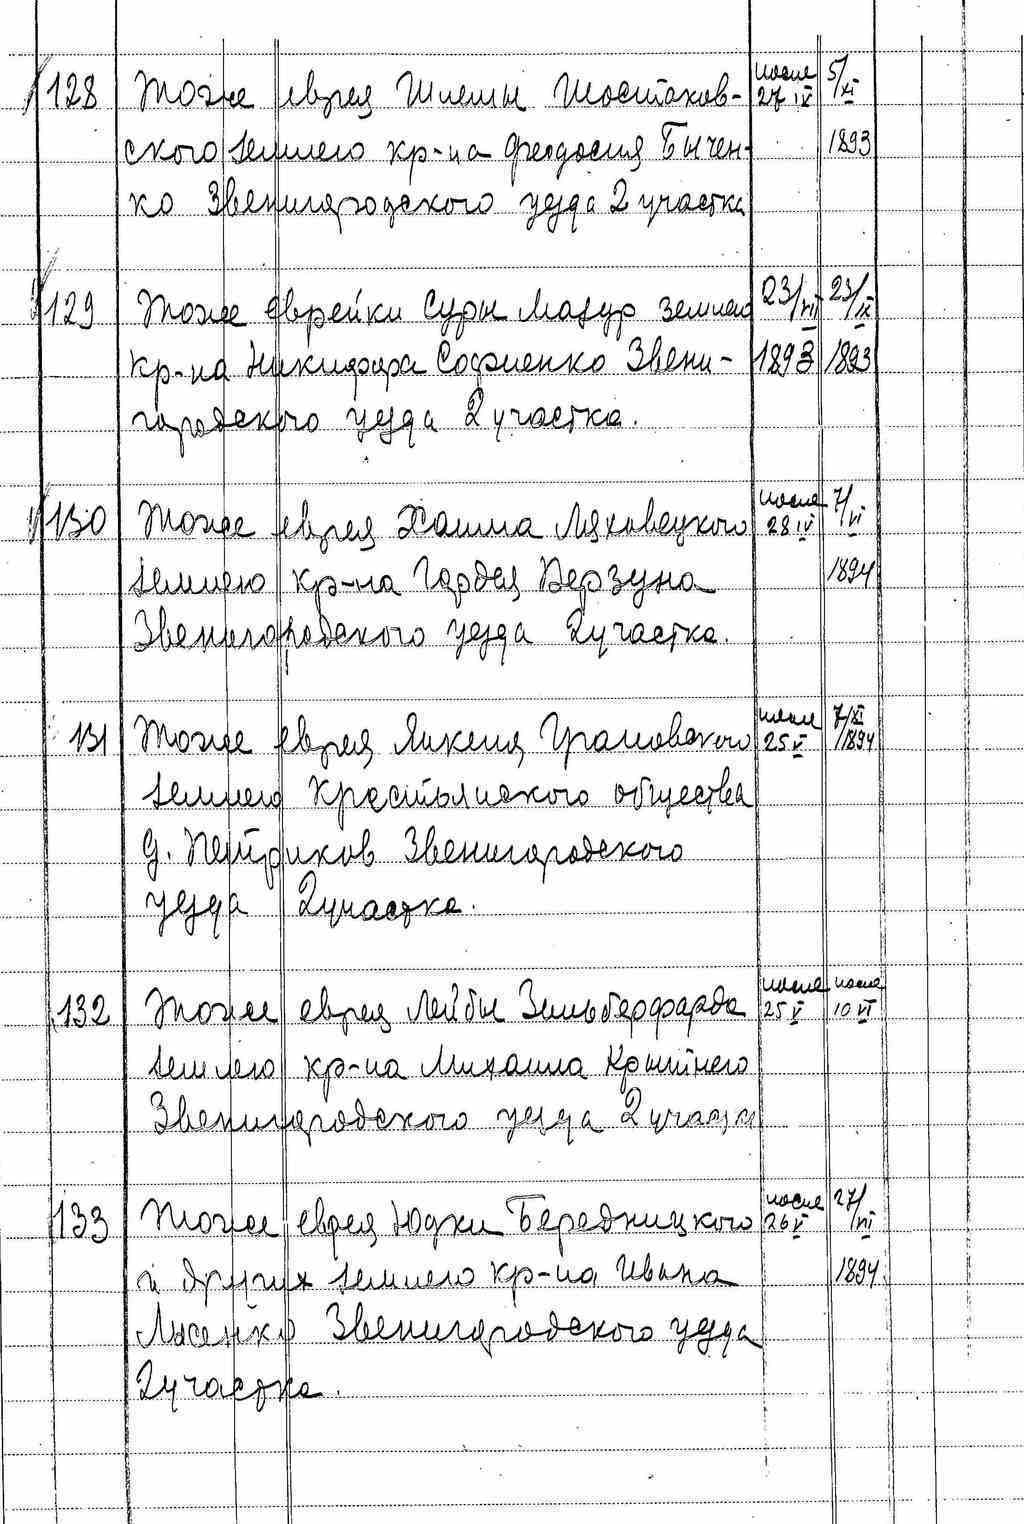 128 Тоже еврея Шлемы Шостаков- после 27 IX 5/XI
ского землею кр-на Феодосия Бычен- 1893
ко Звенигородского уезда 2 участка
129 Тоже еврейки Суры Мазур землею 23/VII 23/IX
кр-на Никифора Софиенко Звени- 1893 1893
городского уезда 2 участка.
130 Тоже еврея Хаима Ляховецкого после 28 IV 7/VI
землею кр-на Гордея Верзуна 1894
Звенигородского уезда 2 участка.
131 Тоже еврея Янкеля Грановского после 25 V 7/XI 1894
землею крестьянского общества
д. Петриков Звенигородского
уезда 2 участка.
132 Тоже еврея Лейбы Зильберфарба после 25 V после 10 VI
землею кр-на Михаила Крытнего
Звенигородского уезда 2 участка
133 Тоже еврея Юдки Бередницкого после 26 V 27/VI
и других землею кр-на Ивана 1894
Лысенко Звенигородского уезда
2 участка.